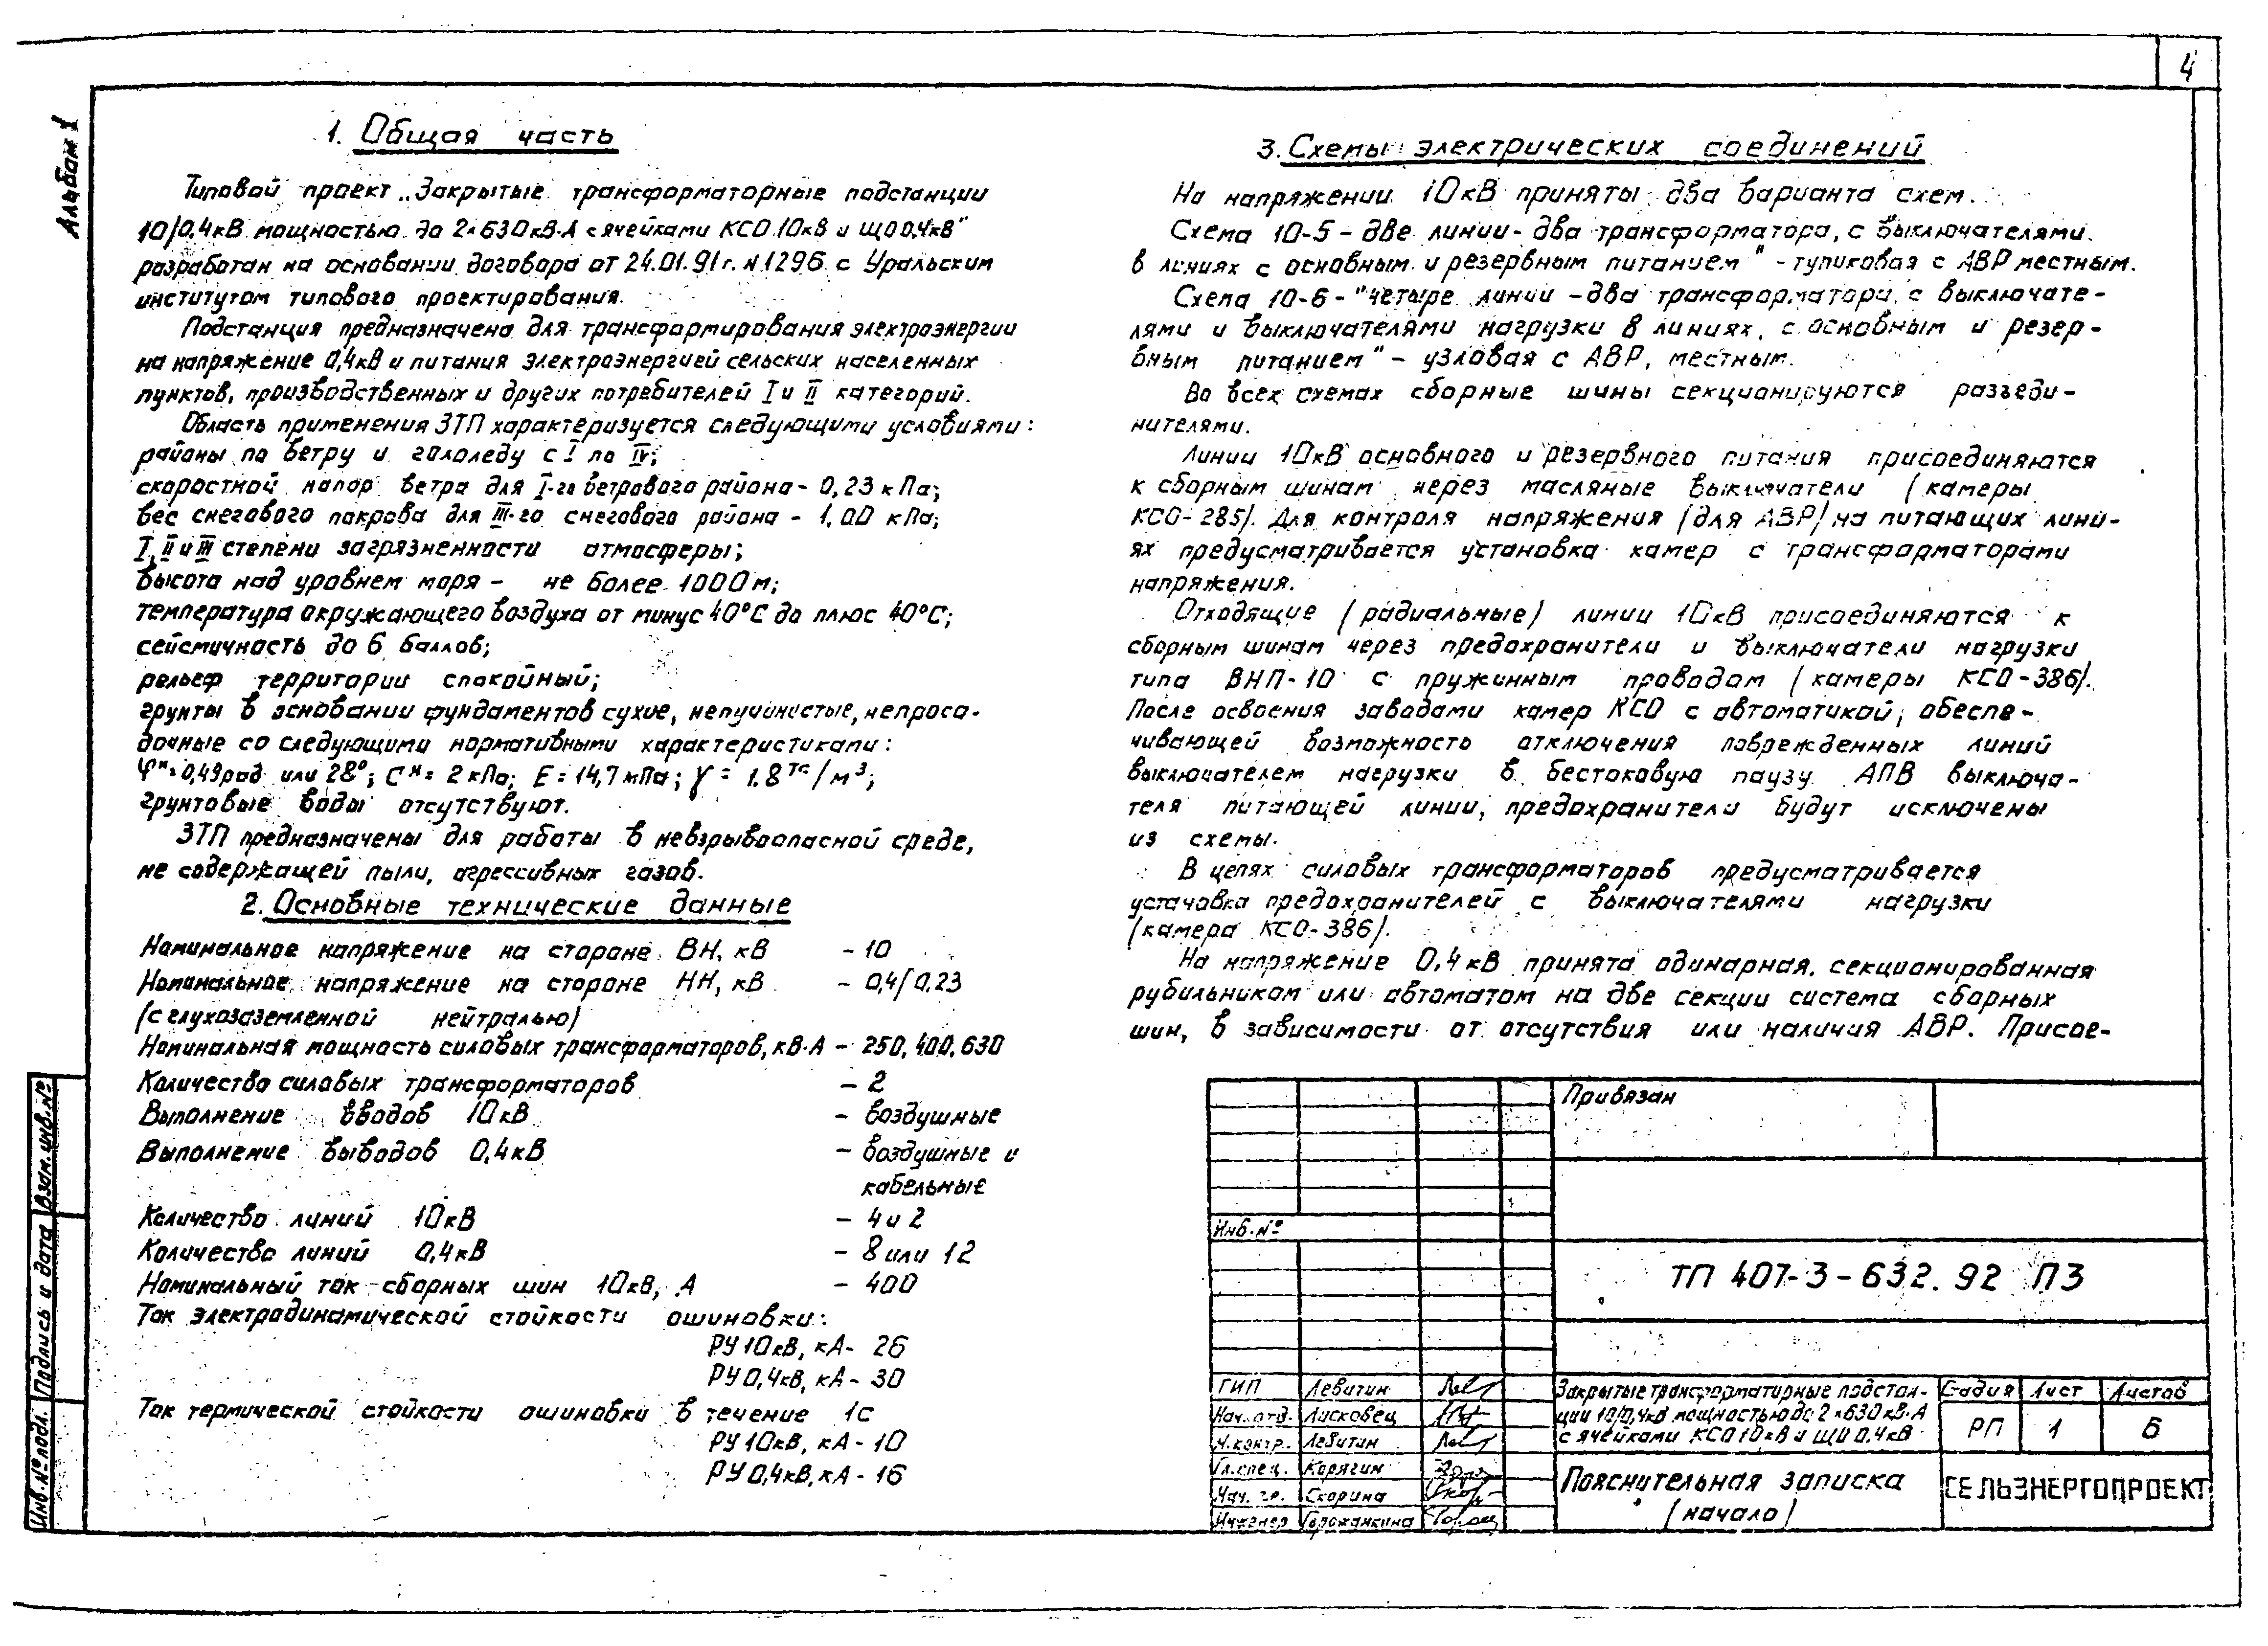 4
Альбом 1
1. Общая часть
Типовой проект „Закрытые трансформаторные подстанции
10/0,4кВ мощностью до 2×630кВ·А с ячейками КСО 10кВ и ЩО 0,4кВ"
разработан на основании договора от 24.01.91г. N 1296 с Уральским
институтом типового проектирования.
Подстанция предназначена для трансформирования электроэнергии
на напряжение 0,4кВ и питания электроэнергией сельских населенных
пунктов, производственных и других потребителей I и II категорий.
Область применения ЗТП характеризуется следующими условиями:
районы по ветру и гололеду с I по IV;
скоростной напор ветра для I-го ветрового района - 0,23 кПа;
вес снегового покрова для III-го снегового района - 1,00 кПа;
I, II и III степени загрязненности атмосферы;
высота над уровнем моря - не более 1000м;
температура окружающего воздуха от минус 40°С до плюс 40°С;
сейсмичность до 6 баллов;
рельеф территории спокойный;
грунты в основании фундаментов сухие, непучинистые, непроса-
дочные со следующими нормативными характеристиками:
φн=0,49рад или 28°; Сн= 2 кПа; Е = 14,7мПа; γ = 1.8 тс/м³;
грунтовые воды отсутствуют.
ЗТП предназначены для работы в невзрывоопасной среде,
не содержащей пыли, агрессивных газов.
2. Основные технические данные
Номинальное напряжение на стороне ВН, кВ - 10
Номинальное напряжение на стороне НН, кВ - 0,4/0,23
(с глухозаземленной нейтралью)
Номинальная мощность силовых трансформаторов, кВ·А - 250, 400, 630
Количество силовых трансформаторов - 2
Выполнение вводов 10кВ - воздушные
Выполнение выводов 0,4кВ - воздушные и
кабельные
Количество линий 10кВ - 4 и 2
Количество линий 0,4кВ - 8 или 12
Номинальный ток сборных шин 10кВ, А - 400
Ток электродинамической стойкости ошиновки:
РУ 10кВ, кА - 26
РУ 0,4кВ, кА - 30
Ток термической стойкости ошиновки в течение 1с
РУ 10кВ, кА - 10
РУ 0,4кВ, кА - 16
3. Схемы электрических соединений
На напряжении 10кВ приняты два варианта схем.
Схема 10-5 - две линии - два трансформатора, с выключателями
в линиях с основным и резервным питанием" - тупиковая с АВР местным.
Схема 10-6 - "четыре линии - два трансформатора, с выключате-
лями и выключателями нагрузки в линиях, с основным и резер-
вным питанием" - узловая с АВР, местным.
Во всех схемах сборные шины секционируются разъеди-
нителями.
Линии 10кВ основного и резервного питания присоединяются
к сборным шинам через масляные выключатели (камеры
КСО-285). Для контроля напряжения (для АВР) на питающих лини-
ях предусматривается установка камер с трансформаторами
напряжения.
Отходящие (радиальные) линии 10кВ присоединяются к
сборным шинам через предохранители и выключатели нагрузки
типа ВНП-10 с пружинным проводом (камеры КСО-386).
После освоения заводами камер КСО с автоматикой, обеспе-
чивающей возможность отключения поврежденных линий
выключателем нагрузки в бестоковую паузу АПВ выключа-
теля питающей линии, предохранители будут исключены
из схемы.
В цепях силовых трансформаторов предусматривается
установка предохранителей с выключателями нагрузки
(камера КСО-386).
На напряжение 0,4кВ принята одинарная, секционированная
рубильником или автоматом на две секции система сборных
шин, в зависимости от отсутствия или наличия АВР. Присое-
Привязан
Инв.№
ТП 407-3-632.92 ПЗ
ГИП Левитин
Нач. отд. Лисковец
Н.контр. Левитин
Гл.спец. Карягин
Нач. гр. Скорина
Инженер Горожанкина
Закрытые трансформаторные подстан-
ции 10/0,4кВ мощностью до 2×630кВ·А
с ячейками КСО 10кВ и ЩО 0,4кВ
Стадия Лист Листов
РП 1 6
Пояснительная записка
(начало)
СЕЛЬЭНЕРГОПРОЕКТ
Инв.№ подл. Подпись и дата Взам.инв.№